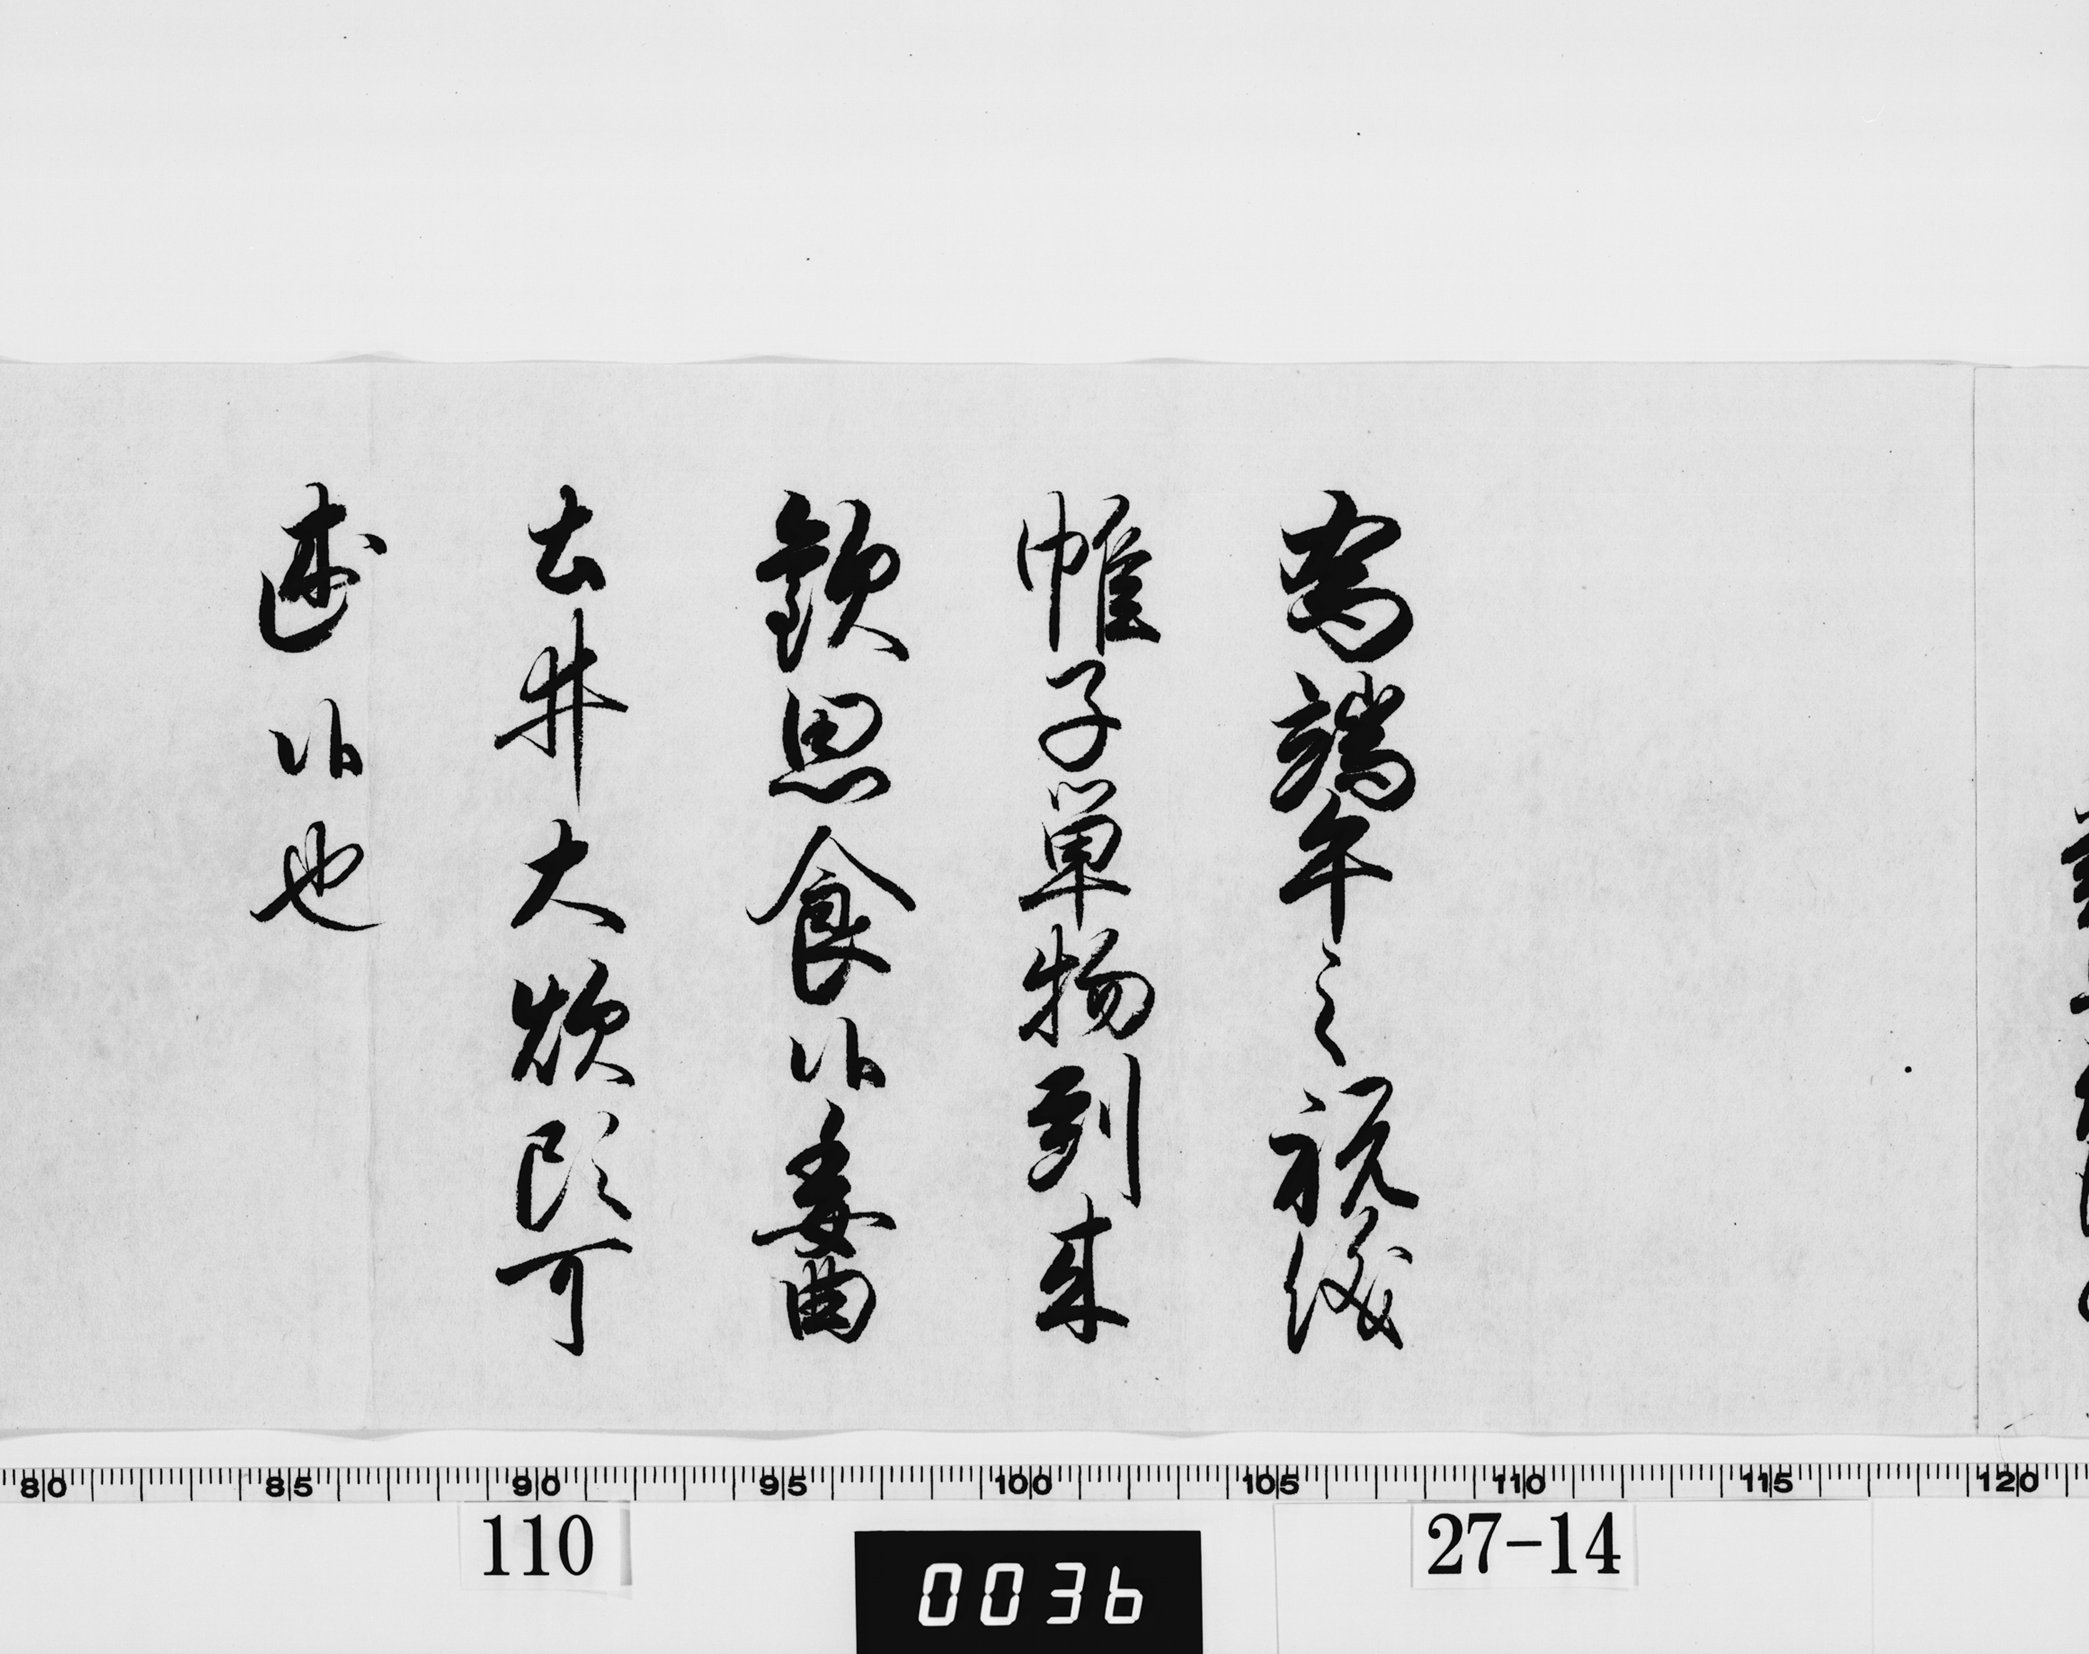 為端午之祝儀
帷子単物到来
歓思食候委曲
土井大炊頭可
述候也
80 85 90 95 100 105 110 115 120
110
27-14
0036